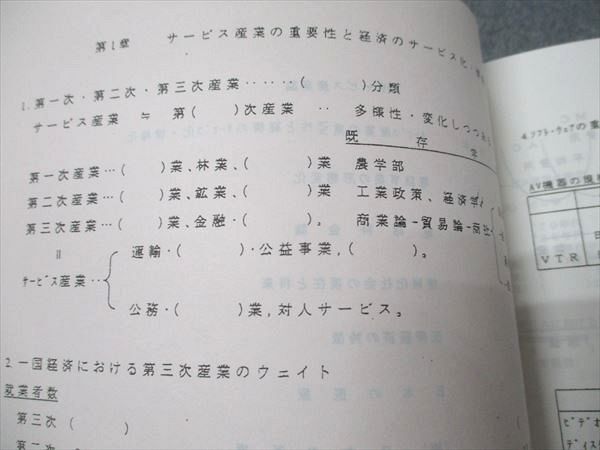 第1章 サービス産業の重要性と経済のサービス化・
1.第一次・第二次・第三次産業‥‥‥( )分類
サービス産業 ≒ 第( )次産業 ‥ 多様性・変化しつつ
既 存
第一次産業…( )業、林業、( )業 農学部
第二次産業…( )業、鉱業、( )業 工業政策、経済学
第三次産業…( )業、金融・( )。 商業論-貿易論-商
॥
サービス産業‥
運輸・( )・公益事業,( )。
公務・( )業,対人サービス。
2.一国経済における第三次産業のウェイト
就業者数
第三次( )
4.ソフト・ウェアの重
AV機器の
VTR
ビデオ
ディス